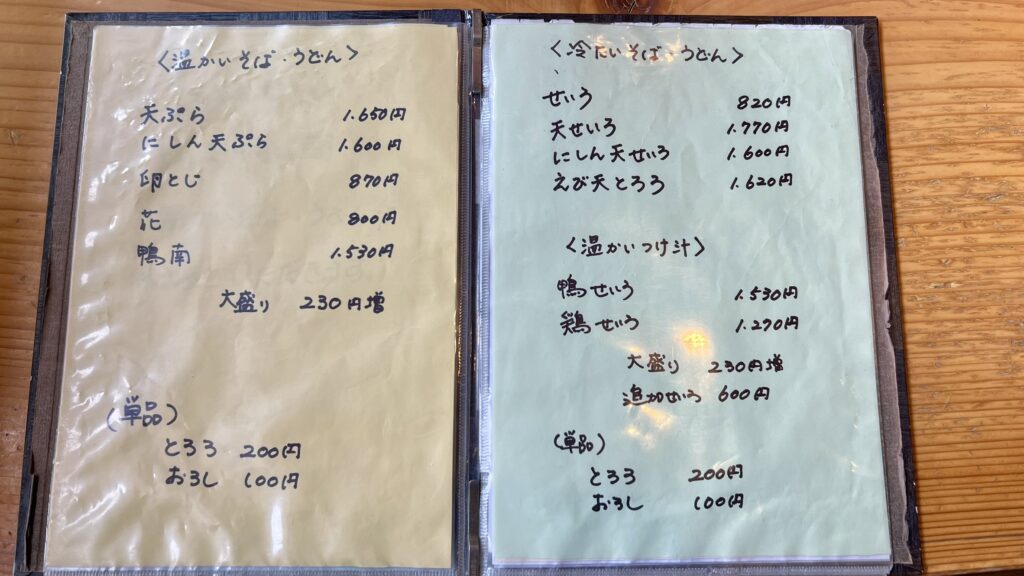 〈温かいそば・うどん〉
天ぷら 1.650円
にしん天ぷら 1.600円
卵とじ 870円
花 800円
鴨南 1.530円
大盛り 230円増
(単品)
とろろ 200円
おろし 100円
〈冷たいそば・うどん〉
せいろ 820円
天せいろ 1.770円
にしん天せいろ 1.600円
えび天とろろ 1.620円
〈温かいつけ汁〉
鴨せいろ 1.530円
鶏せいろ 1.270円
大盛り 230円増
追加せいろ 600円
(単品)
とろろ 200円
おろし 100円